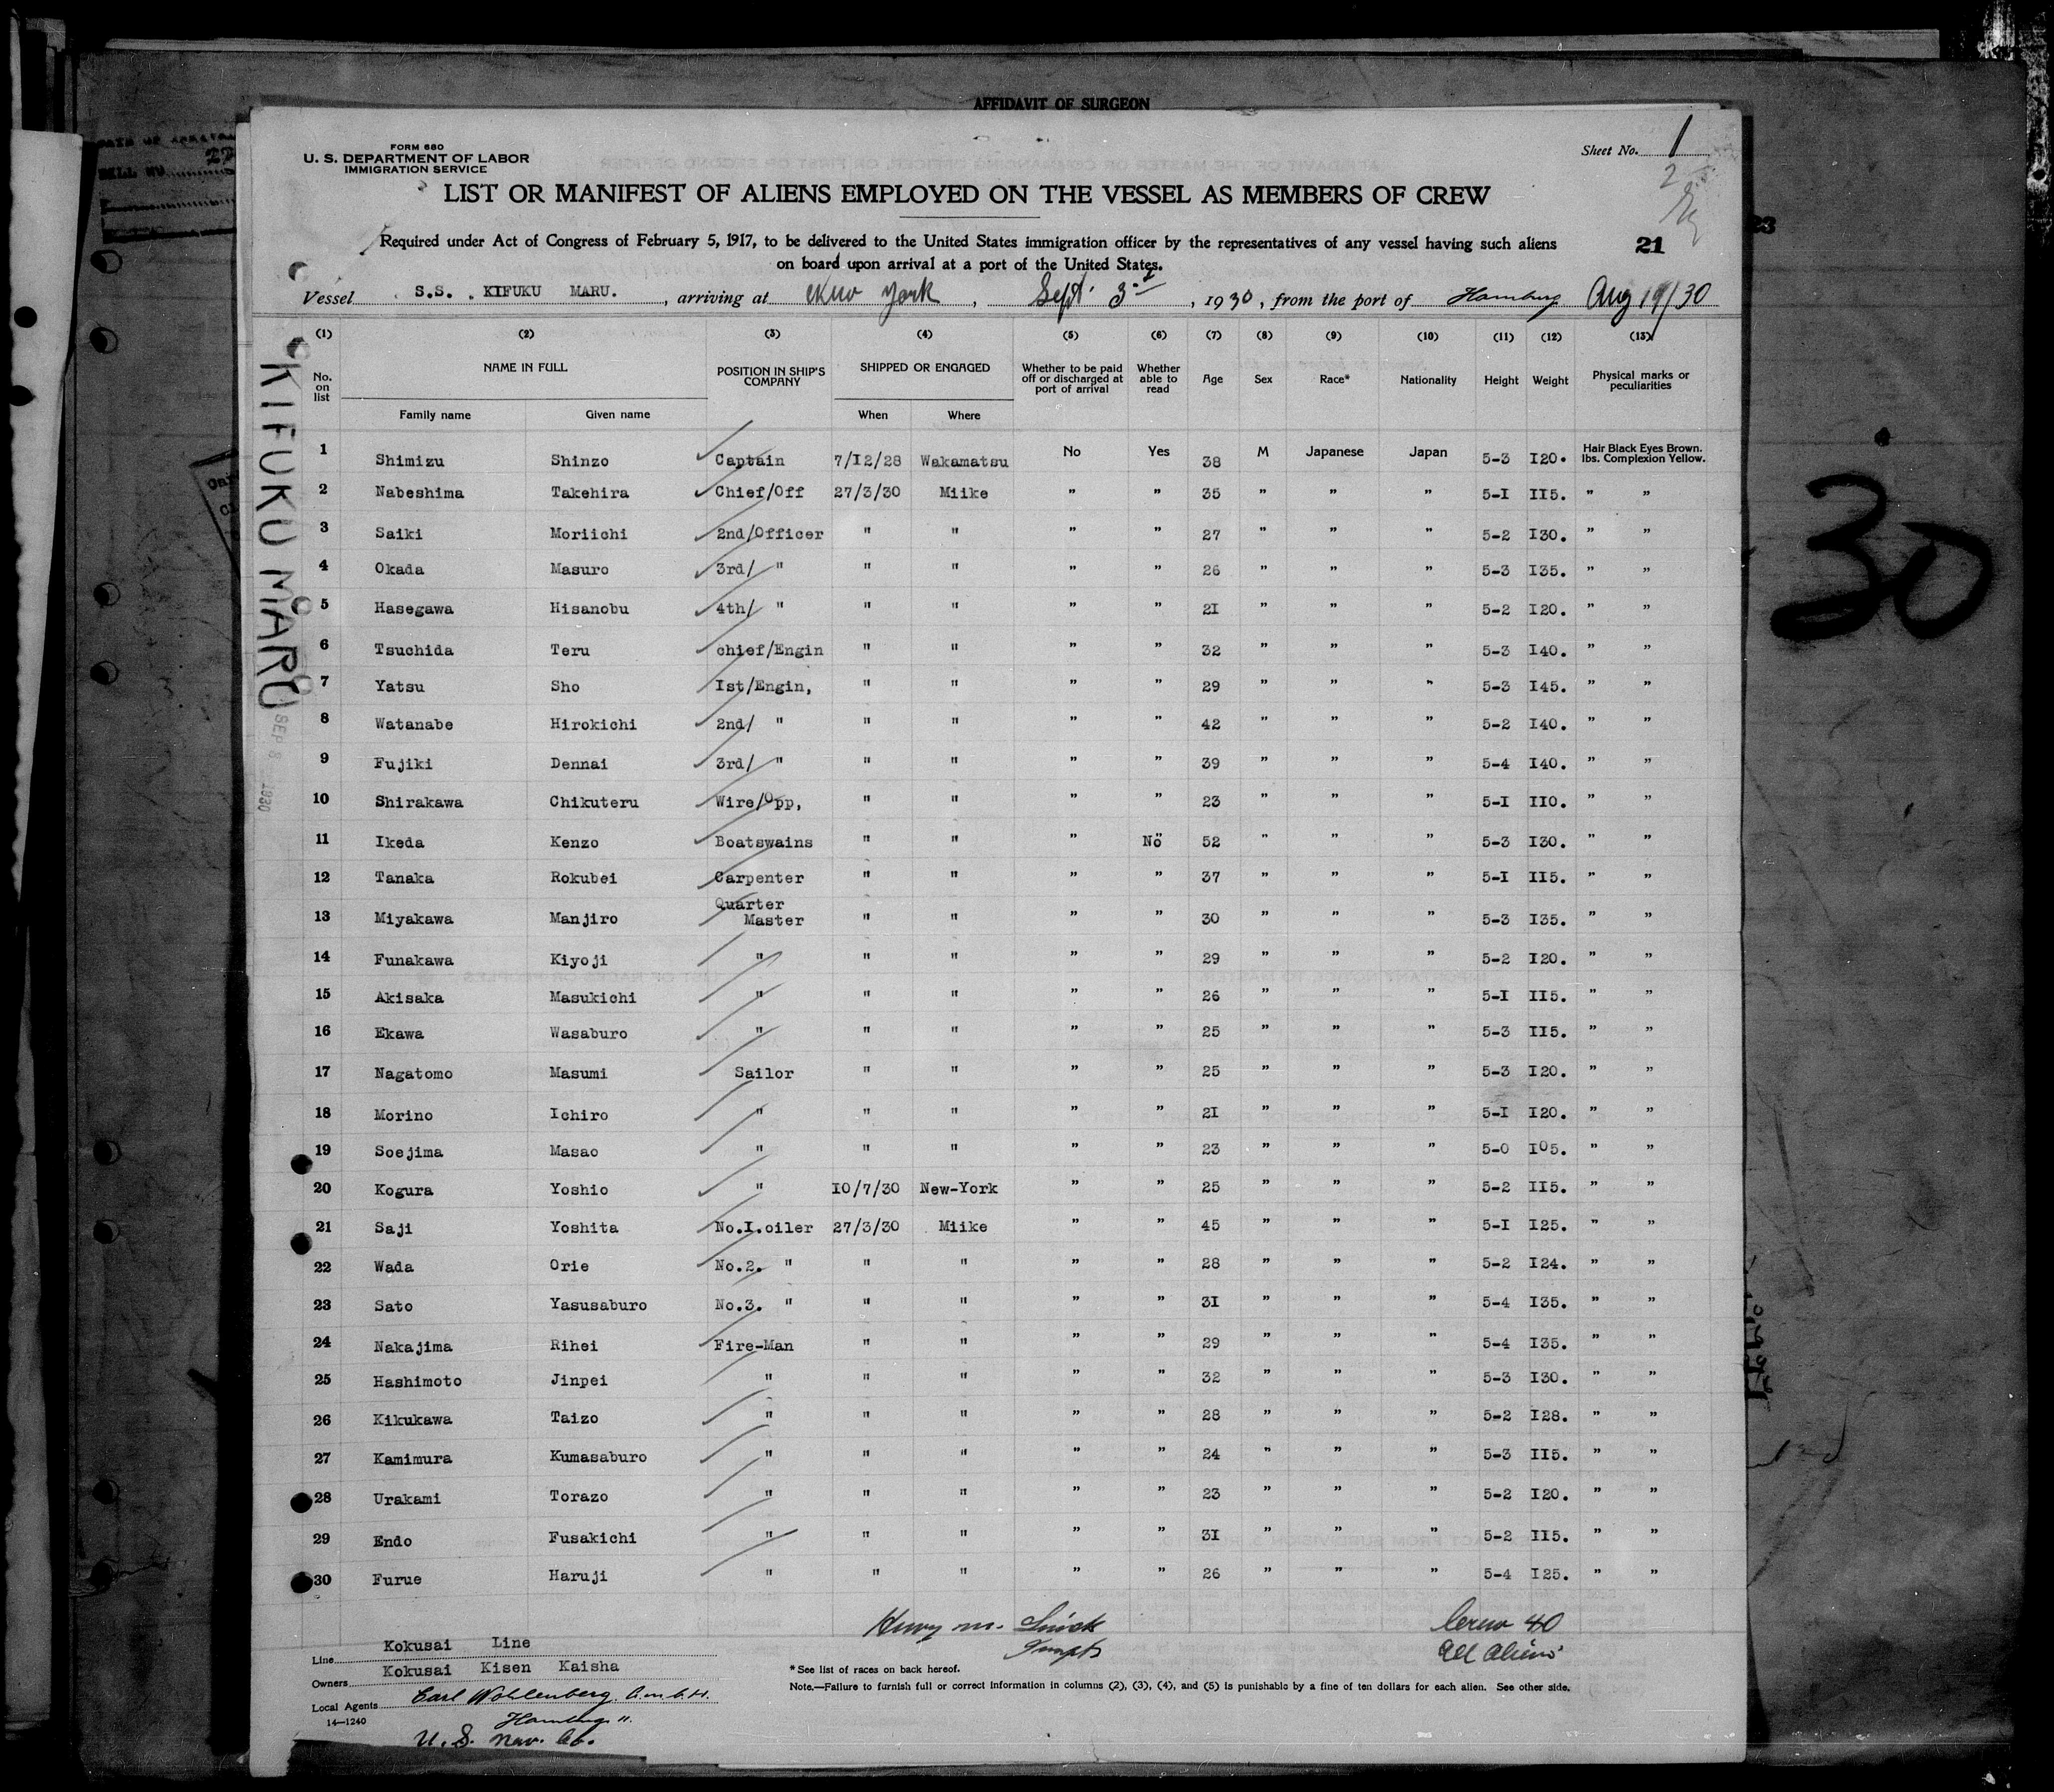 AFFIDAVIT OF SURGEON
FORM 680
U. S. DEPARTMENT OF LABOR
IMMIGRATION SERVICE
Sheet No. 1
LIST OR MANIFEST OF ALIENS EMPLOYED ON THE VESSEL AS MEMBERS OF CREW
Required under Act of Congress of February 5, 1917, to be delivered to the United States immigration officer by the representatives of any vessel having such aliens
on board upon arrival at a port of the United States.
21
23
Vessel S.S. KIFUKU MARU. , arriving at New York , Sept. 3 , 1930, from the port of Hamburg Aug 19/30
(1) (2) (3) (4) (5) (6) (7) (8) (9) (10) (11) (12) (13)
No. on list NAME IN FULL POSITION IN SHIP'S COMPANY SHIPPED OR ENGAGED Whether to be paid off or discharged at port of arrival Whether able to read Age Sex Race* Nationality Height Weight Physical marks or peculiarities
Family name Given name When Where
1 Shimizu Shinzo Captain 7/12/28 Wakamatsu No Yes 38 M Japanese Japan 5-3 120. lbs. Hair Black Eyes Brown. Complexion Yellow.
2 Nabeshima Takehira Chief/Off 27/3/30 Miike " " 35 " " " 5-1 115. " "
3 Saiki Moriichi 2nd/Officer " " " " 27 " " " 5-2 130. " "
4 Okada Masuro 3rd/ " " " " " 26 " " " 5-3 135. " "
5 Hasegawa Hisanobu 4th/ " " " " " 21 " " " 5-2 120. " "
6 Tsuchida Teru chief/Engin " " " " 32 " " " 5-3 140. " "
7 Yatsu Sho 1st/Engin, " " " " 29 " " " 5-3 145. " "
8 Watanabe Hirokichi 2nd/ " " " " " 42 " " " 5-2 140. " "
9 Fujiki Dennai 3rd/ " " " " " 39 " " " 5-4 140. " "
10 Shirakawa Chikuteru Wire/Opp, " " " " 23 " " " 5-1 110. " "
11 Ikeda Kenzo Boatswains " " " No 52 " " " 5-3 130. " "
12 Tanaka Rokubei Carpenter " " " " 37 " " " 5-1 115. " "
13 Miyakawa Manjiro Quarter Master " " " " 30 " " " 5-3 135. " "
14 Funakawa Kiyoji " " " " " 29 " " " 5-2 120. " "
15 Akisaka Masukichi " " " " " 26 " " " 5-1 115. " "
16 Ekawa Wasaburo " " " " " 25 " " " 5-3 115. " "
17 Nagatomo Masumi Sailor " " " " 25 " " " 5-3 120. " "
18 Morino Ichiro " " " " " 21 " " " 5-1 120. " "
19 Soejima Masao " " " " " 23 " " " 5-0 105. " "
20 Kogura Yoshio " 10/7/30 New-York " " 25 " " " 5-2 115. " "
21 Saji Yoshita No.1.oiler 27/3/30 Miike " " 45 " " " 5-1 125. " "
22 Wada Orie No.2. " " " " " 28 " " " 5-2 124. " "
23 Sato Yasusaburo No.3. " " " " " 31 " " " 5-4 135. " "
24 Nakajima Rihei Fire-Man " " " " 29 " " " 5-4 135. " "
25 Hashimoto Jinpei " " " " " 32 " " " 5-3 130. " "
26 Kikukawa Taizo " " " " " 28 " " " 5-2 128. " "
27 Kamimura Kumasaburo " " " " " 24 " " " 5-3 115. " "
28 Urakami Torazo " " " " " 23 " " " 5-2 120. " "
29 Endo Fusakichi " " " " " 31 " " " 5-2 115. " "
30 Furue Haruji " " " " " 26 " " " 5-4 125. " "
KIFUKU MARU
SEP 8 1930
30
Henry M.
Crew 40
All Aliens
Line Kokusai Line
Owners Kokusai Kisen Kaisha
Local Agents Carl Wohlenberg G.m.b.H.
Hamburg 11.
14—1240
U. S. Nav. Co.
*See list of races on back hereof.
Note.—Failure to furnish full or correct information in columns (2), (3), (4), and (5) is punishable by a fine of ten dollars for each alien. See other side.